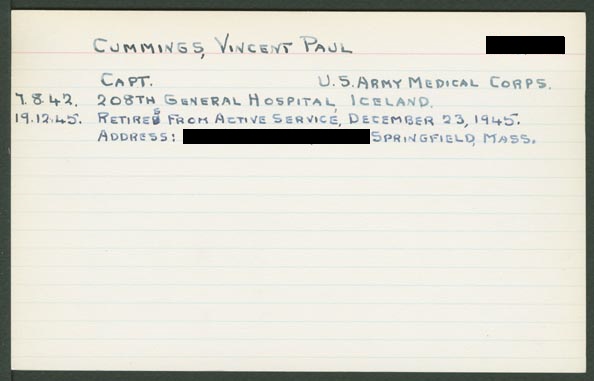 CUMMINGS, VINCENT PAUL
CAPT. U.S. ARMY MEDICAL CORPS.
7.8.42. 208TH GENERAL HOSPITAL, ICELAND.
19.12.45. RETIRES FROM ACTIVE SERVICE, DECEMBER 23, 1945.
ADDRESS: SPRINGFIELD, MASS.